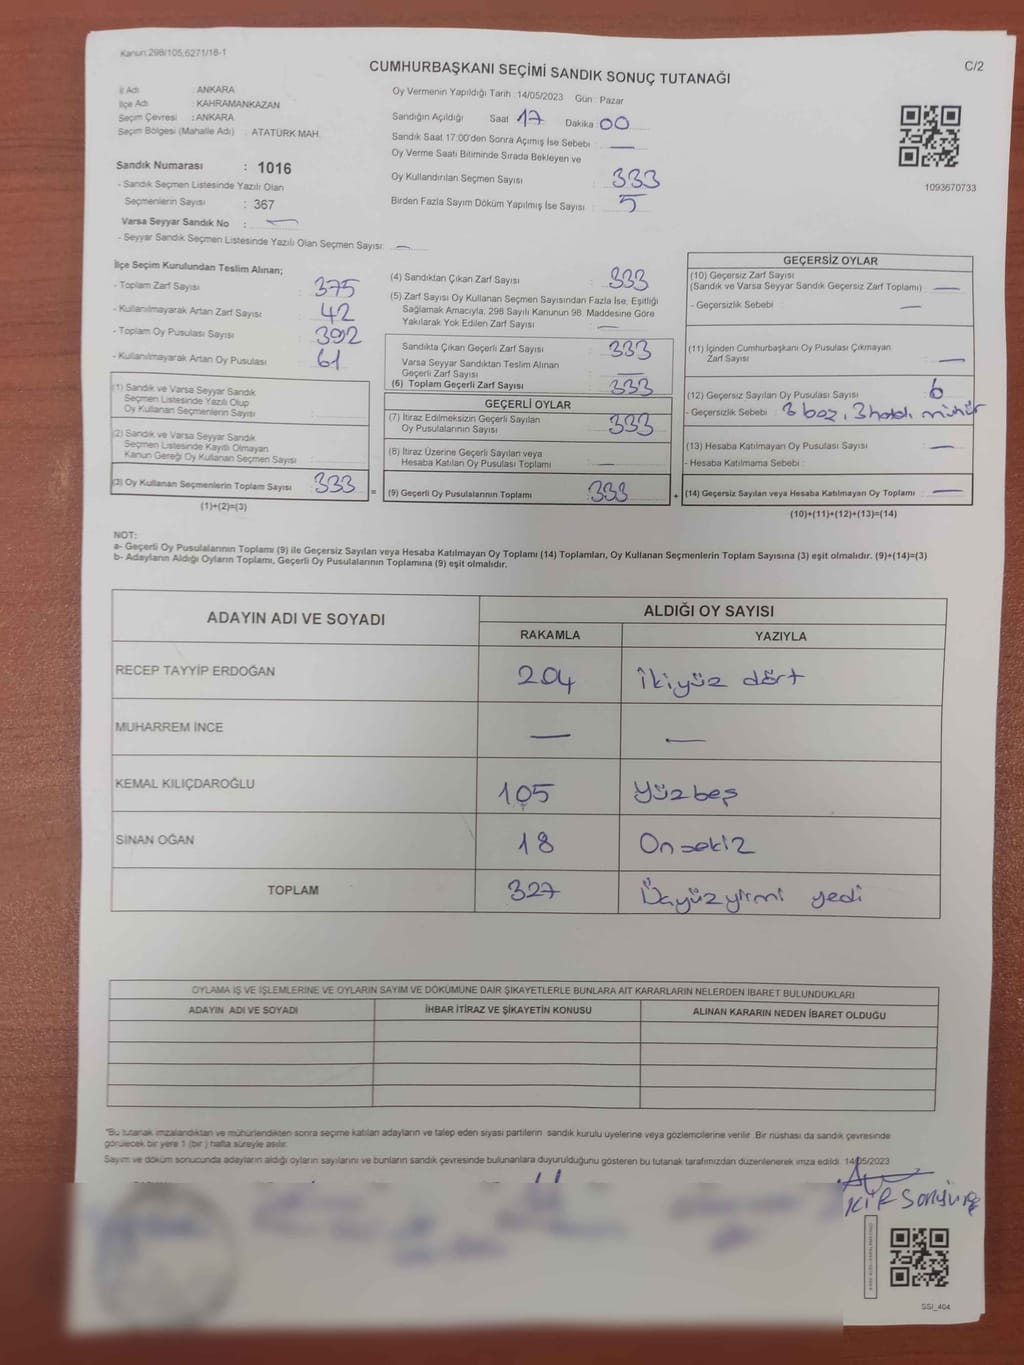 Kanun:298/105,6271/18-1
C/2
CUMHURBAŞKANI SEÇİMİ SANDIK SONUÇ TUTANAĞI
İl Adı : ANKARA
İlçe Adı : KAHRAMANKAZAN
Seçim Çevresi : ANKARA
Seçim Bölgesi (Mahalle Adı) : ATATÜRK MAH.
Sandık Numarası : 1016
- Sandık Seçmen Listesinde Yazılı Olan
Seçmenlerin Sayısı : 367
Varsa Seyyar Sandık No : —
- Seyyar Sandık Seçmen Listesinde Yazılı Olan Seçmen Sayısı: —
Oy Vermenin Yapıldığı Tarih : 14/05/2023 Gün : Pazar
Sandığın Açıldığı Saat 17 Dakika 00
Sandık Saat 17:00'den Sonra Açımış İse Sebebi : —
Oy Verme Saati Bitiminde Sırada Bekleyen ve
Oy Kullandırılan Seçmen Sayısı : 333
Birden Fazla Sayım Döküm Yapılmış İse Sayısı : 5
1093670733
İlçe Seçim Kurulundan Teslim Alınan;
- Toplam Zarf Sayısı : 375
- Kullanılmayarak Artan Zarf Sayısı : 42
- Toplam Oy Pusulası Sayısı : 392
- Kullanılmayarak Artan Oy Pusulası : 61
(1) Sandık ve Varsa Seyyar Sandık
Seçmen Listesinde Yazılı Olup
Oy Kullanan Seçmenlerin Sayısı :
(2) Sandık ve Varsa Seyyar Sandık
Seçmen Listesinde Kayıtlı Olmayan
Kanun Gereği Oy Kullanan Seçmen Sayısı :
(3) Oy Kullanan Seçmenlerin Toplam Sayısı : 333 =
(1)+(2)=(3)
(4) Sandıktan Çıkan Zarf Sayısı : 333
(5) Zarf Sayısı Oy Kullanan Seçmen Sayısından Fazla İse, Eşitliği
Sağlamak Amacıyla, 298 Sayılı Kanunun 98. Maddesine Göre
Yakılarak Yok Edilen Zarf Sayısı : —
Sandıkta Çıkan Geçerli Zarf Sayısı : 333
Varsa Seyyar Sandıktan Teslim Alınan
Geçerli Zarf Sayısı : —
(6) Toplam Geçerli Zarf Sayısı : 333
GEÇERLİ OYLAR
(7) İtiraz Edilmeksizin Geçerli Sayılan
Oy Pusulalarının Sayısı : 333
(8) İtiraz Üzerine Geçerli Sayılan veya
Hesaba Katılan Oy Pusulası Toplamı : —
(9) Geçerli Oy Pusulalarının Toplamı : 333 +
GEÇERSİZ OYLAR
(10) Geçersiz Zarf Sayısı
(Sandık ve Varsa Seyyar Sandık Geçersiz Zarf Toplamı) : —
- Geçersizlik Sebebi : —
(11) İçinden Cumhurbaşkanı Oy Pusulası Çıkmayan
Zarf Sayısı : —
(12) Geçersiz Sayılan Oy Pusulası Sayısı : 6
- Geçersizlik Sebebi : 3 boz, 3 hatalı mühür
(13) Hesaba Katılmayan Oy Pusulası Sayısı : —
- Hesaba Katılmama Sebebi :
(14) Geçersiz Sayılan veya Hesaba Katılmayan Oy Toplamı : —
(10)+(11)+(12)+(13)=(14)
NOT:
a- Geçerli Oy Pusulalarının Toplamı (9) ile Geçersiz Sayılan veya Hesaba Katılmayan Oy Toplamı (14) Toplamları, Oy Kullanan Seçmenlerin Toplam Sayısına (3) eşit olmalıdır. (9)+(14)=(3)
b- Adayların Aldığı Oyların Toplamı, Geçerli Oy Pusulalarının Toplamına (9) eşit olmalıdır.
ADAYIN ADI VE SOYADI
ALDIĞI OY SAYISI
RAKAMLA YAZIYLA
RECEP TAYYİP ERDOĞAN 204 İkiyüz dört
MUHARREM İNCE — —
KEMAL KILIÇDAROĞLU 105 Yüzbeş
SİNAN OĞAN 18 Onsekiz
TOPLAM 327 Üçyüzyirmi yedi
OYLAMA İŞ VE İŞLEMLERİNE VE OYLARIN SAYIM VE DÖKÜMÜNE DAİR ŞİKAYETLERLE BUNLARA AİT KARARLARIN NELERDEN İBARET BULUNDUKLARI
ADAYIN ADI VE SOYADI İHBAR İTİRAZ VE ŞİKAYETİN KONUSU ALINAN KARARIN NEDEN İBARET OLDUĞU
"Bu tutanak imzalandıktan ve mühürlendikten sonra seçime katılan adayların ve talep eden siyasi partilerin sandık kurulu üyelerine veya gözlemcilerine verilir. Bir nüshası da sandık çevresinde
görülecek bir yere 1 (bir ) hafta süreyle asılır.
Sayım ve döküm sonucunda adayların aldığı oyların sayılarını ve bunların sandık çevresinde bulunanlara duyurulduğunu gösteren bu tutanak tarafımızdan düzenlenerek imza edildi. 14/05/2023
SSI_404